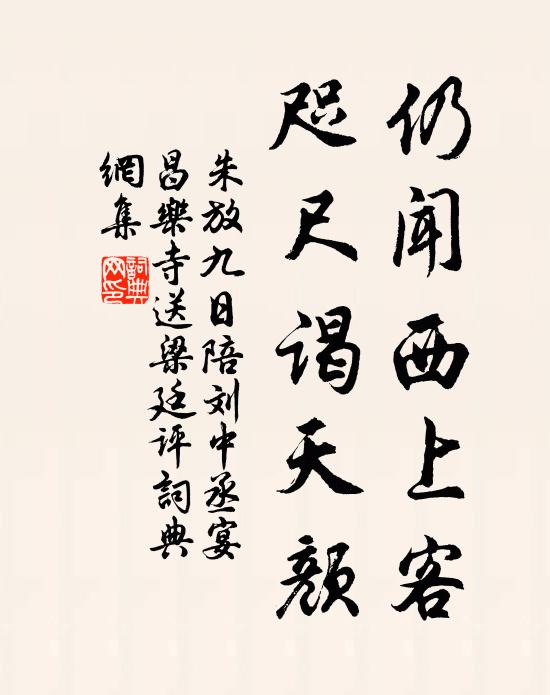 仍闻西上客
咫尺谒天颜
朱放九日陪刘中丞宴
昌樂寺送梁廷评詞典
網集
詞典網印